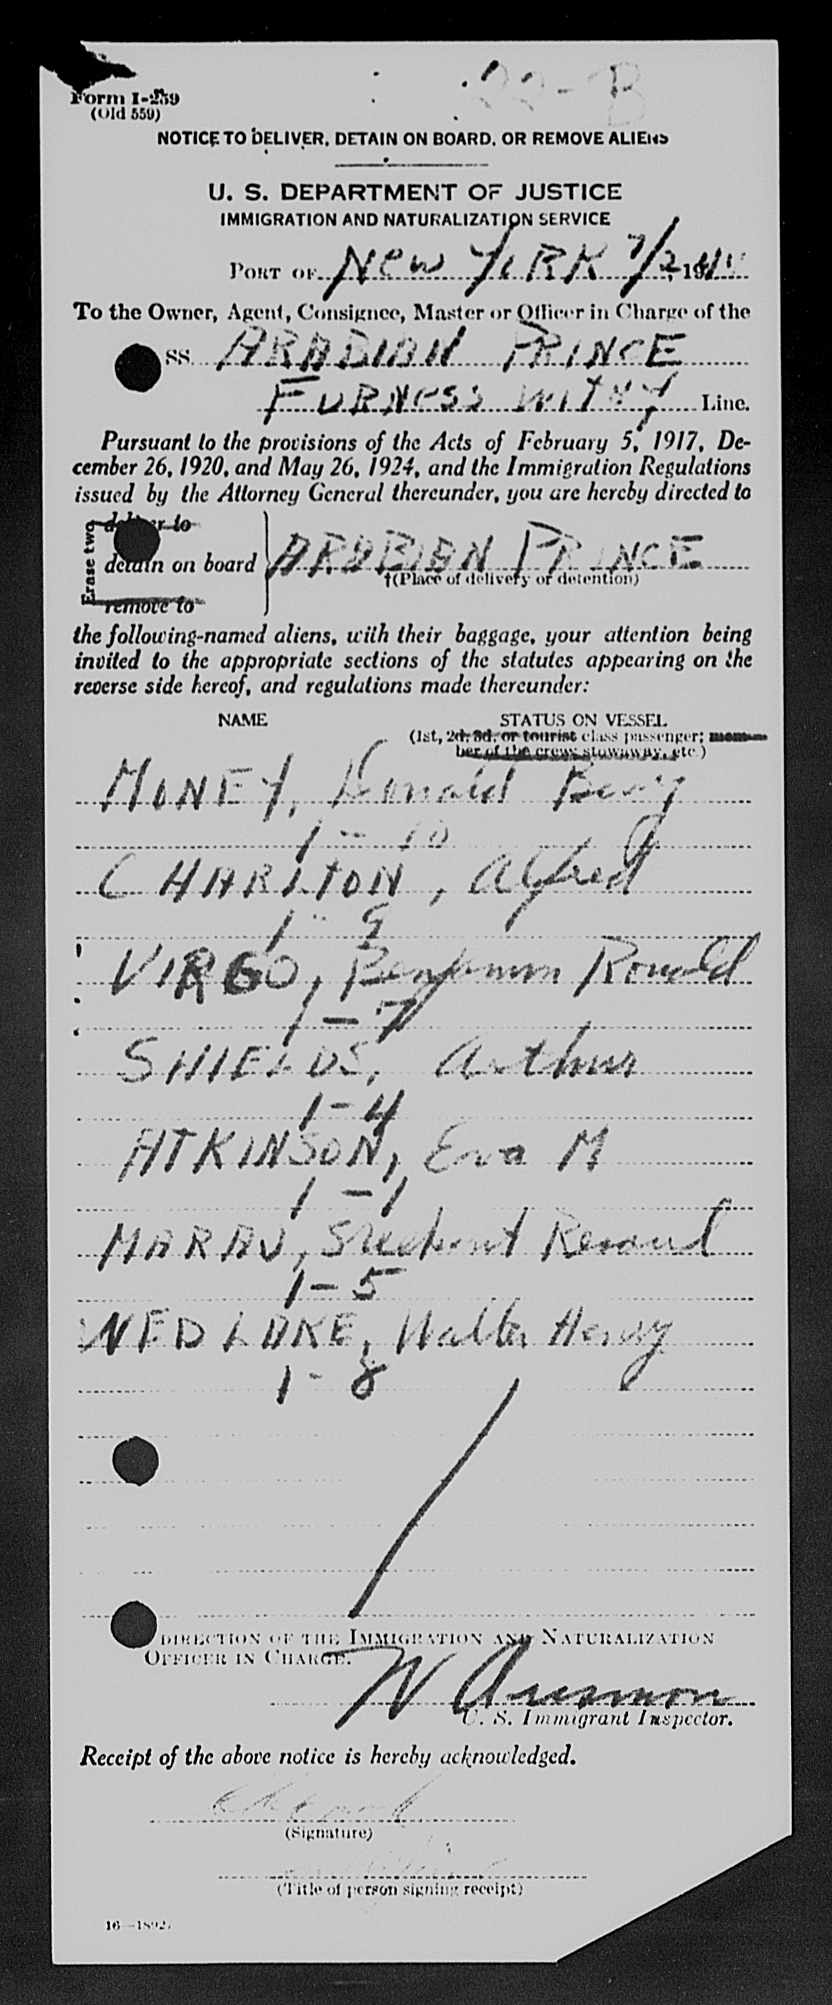 22-B
Form I-259
(Old 559)
NOTICE TO DELIVER, DETAIN ON BOARD, OR REMOVE ALIENS
U. S. DEPARTMENT OF JUSTICE
IMMIGRATION AND NATURALIZATION SERVICE
PORT OF NEW YORK 7/2, 194
To the Owner, Agent, Consignee, Master or Officer in Charge of the
SS. ARABIAN PRINCE
FURNESS WITHY Line.
Pursuant to the provisions of the Acts of February 5, 1917, De-
cember 26, 1920, and May 26, 1924, and the Immigration Regulations
issued by the Attorney General thereunder, you are hereby directed to
Erase two
deliver to
detain on board ARABIAN PRINCE
†(Place of delivery or detention)
remove to
the following-named aliens, with their baggage, your attention being
invited to the appropriate sections of the statutes appearing on the
reverse side hereof, and regulations made thereunder:
NAME STATUS ON VESSEL
(1st, 2d, 3d, or tourist class passenger; mem-
ber of the crew, stowaway, etc.)
MONEY, Donald
1 - 10
CHARLTON, Alfred
1 - 9
VIRGO, Benjamin Ronald
1 - 7
SHIELDS, Arthur
1 - 4
ATKINSON, Eva M
1 - 1
MARAJ,
1 - 5
NEDLAKE, Walter Henry
1 - 8
DIRECTION OF THE IMMIGRATION AND NATURALIZATION
OFFICER IN CHARGE.
W
U. S. Immigrant Inspector.
Receipt of the above notice is hereby acknowledged.
(Signature)
(Title of person signing receipt)